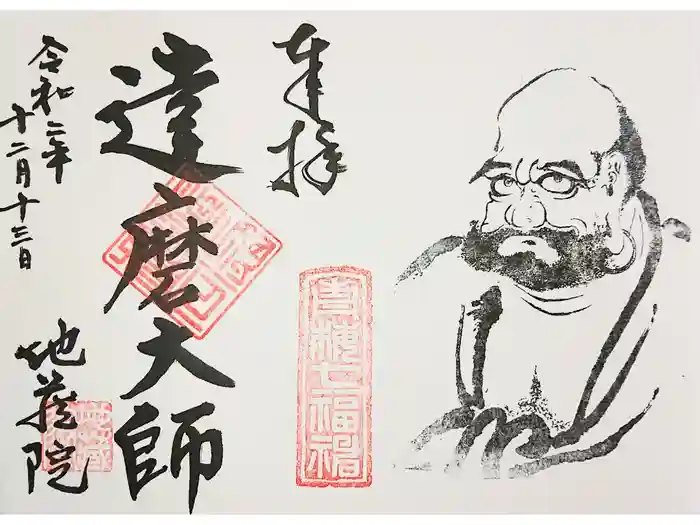 奉拝
達磨大師
令和二年
十二月十三日
地蔵院
七福